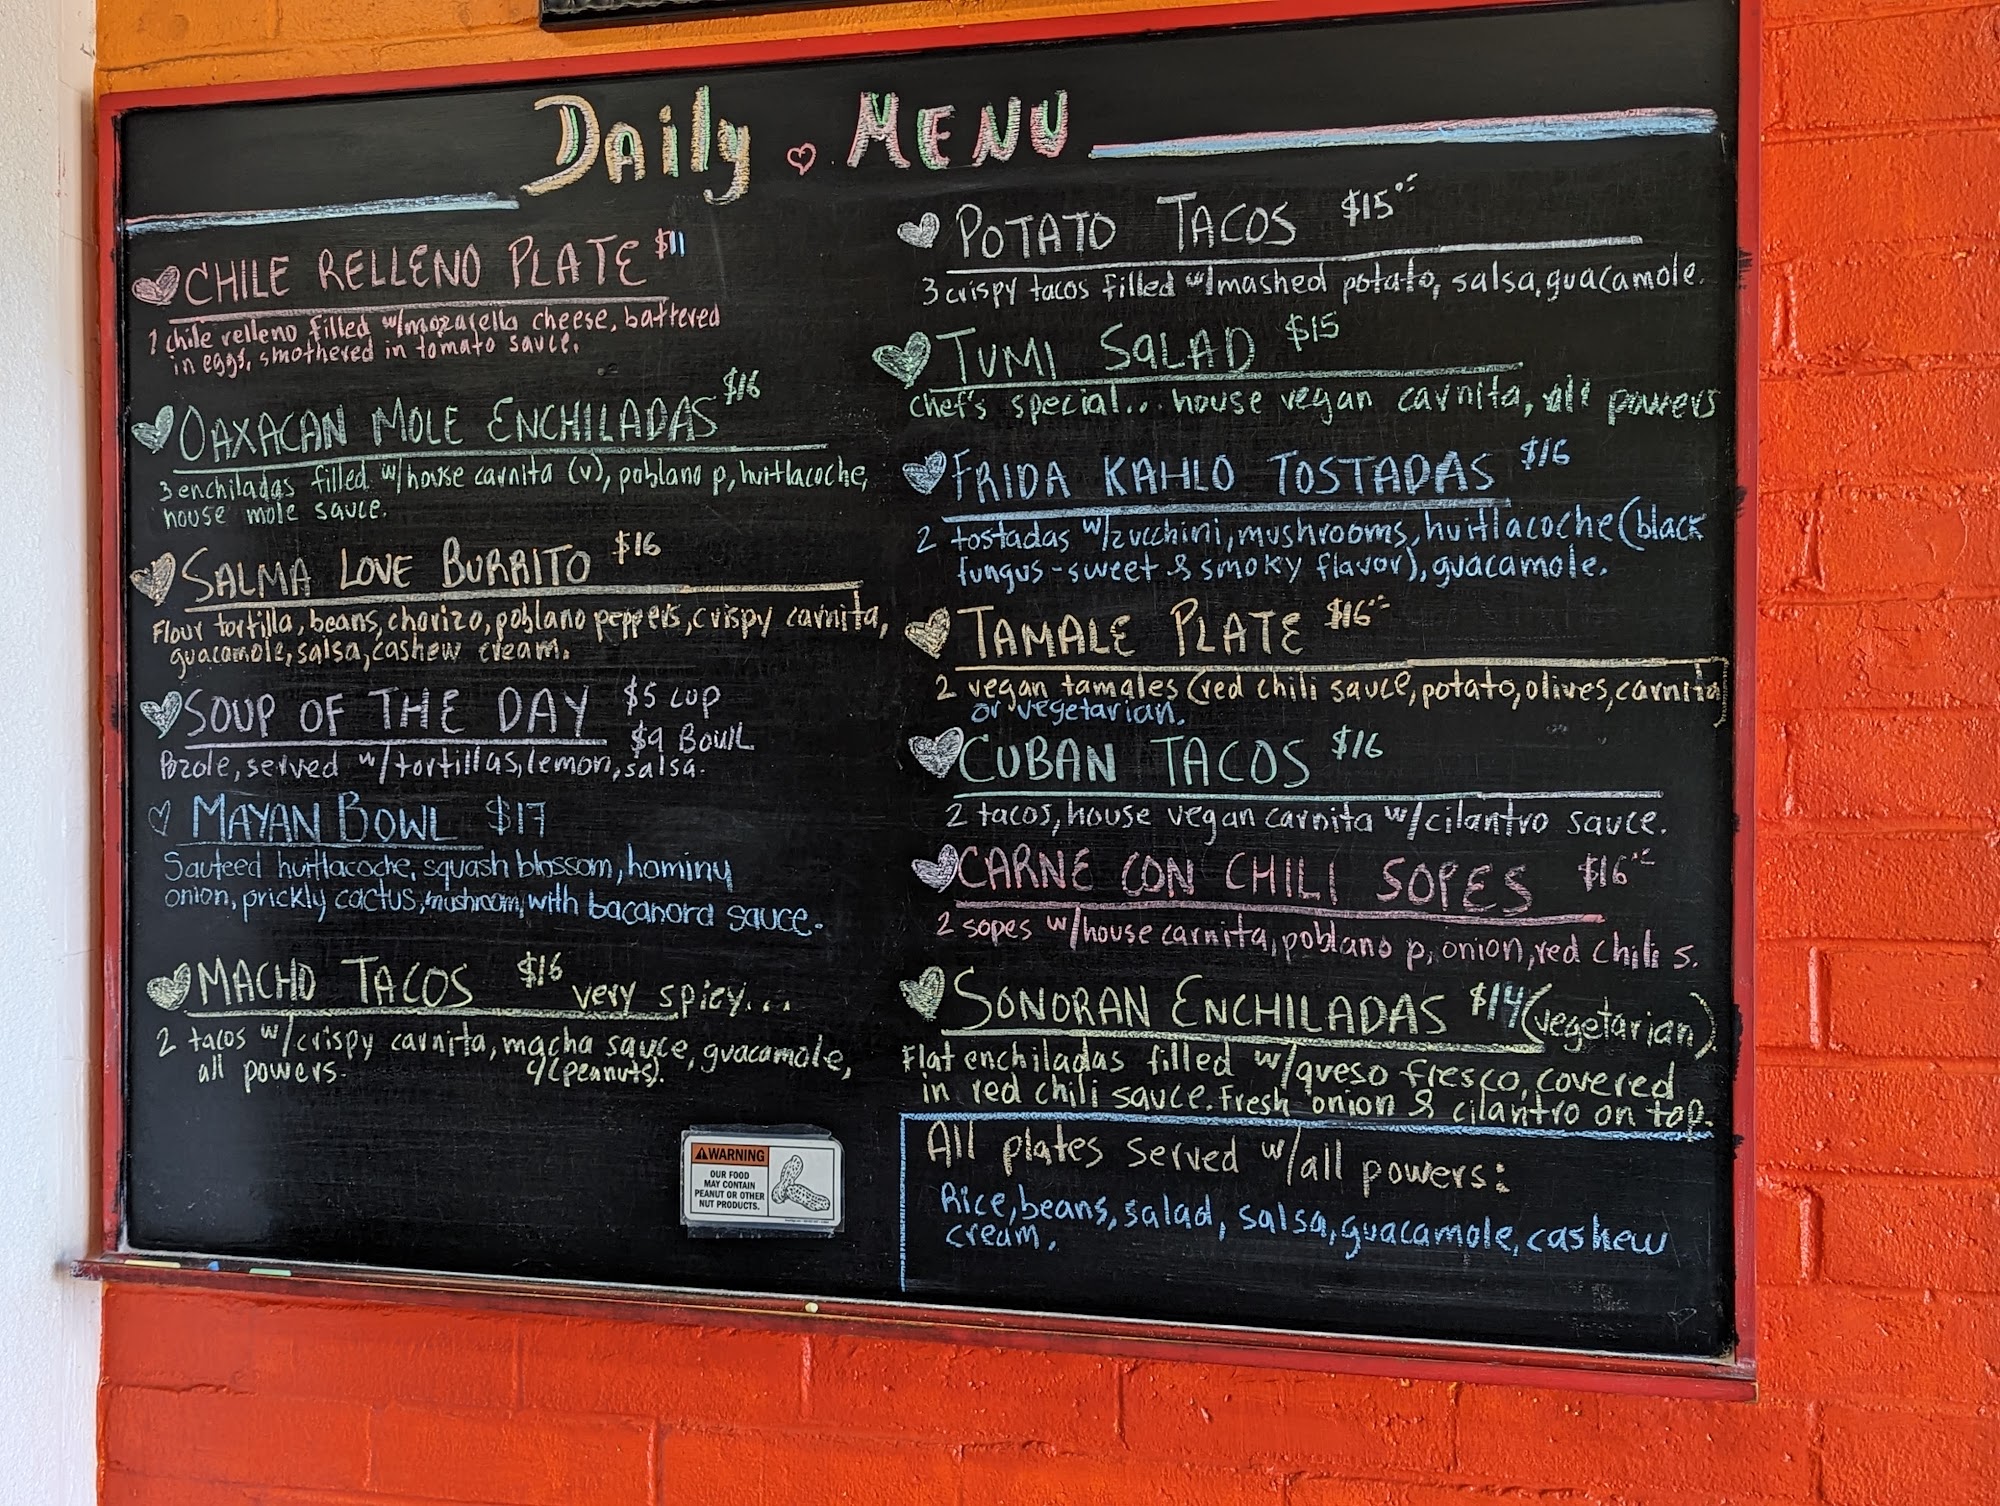 Daily MENU
CHILE RELLENO PLATE $11
1 chile relleno filled w/mozarella cheese, battered
in eggs, smothered in tomato sauce.
OAXACAN MOLE ENCHILADAS $16
3 enchiladas filled w/house carnita (v), poblano p, huitlacoche,
house mole sauce.
SALMA LOVE BURRITO $16
Flour tortilla, beans, chorizo, poblano peppers, crispy carnita,
guacamole, salsa, cashew cream.
SOUP OF THE DAY $5 CUP
$9 BOWL
Pozole, served w/tortillas, lemon, salsa.
MAYAN BOWL $17
Sauteed huitlacoche, squash blossom, hominy
onion, prickly cactus, mushroom, with bacanora sauce.
MACHO TACOS $16 very spicy...
2 tacos w/crispy carnita, macha sauce, guacamole,
all powers. c/(peanuts).
WARNING
OUR FOOD
MAY CONTAIN
PEANUT OR OTHER
NUT PRODUCTS.
POTATO TACOS $15
3 crispy tacos filled w/mashed potato, salsa, guacamole.
TUMI SALAD $15
Chef's special... house vegan carnita, all powers
FRIDA KAHLO TOSTADAS $16
2 tostadas w/zucchini, mushrooms, huitlacoche (black
fungus-sweet & smoky flavor), guacamole.
TAMALE PLATE $16
2 vegan tamales (red chili sauce, potato, olives, carnita)
or vegetarian.
CUBAN TACOS $16
2 tacos, house vegan carnita w/cilantro sauce.
CARNE CON CHILI SOPES $16
2 sopes w/house carnita, poblano p, onion, red chili s.
SONORAN ENCHILADAS $14 (vegetarian)
Flat enchiladas filled w/queso fresco, covered
in red chili sauce. Fresh onion & cilantro on top.
All plates served w/all powers:
Rice, beans, salad, salsa, guacamole, cashew
cream.